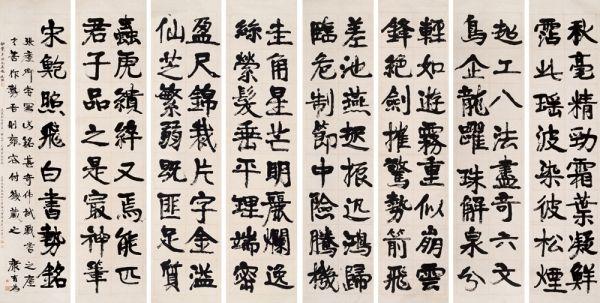 秋毫精勁霜葉凝鮮
霑此瑶波染彼松煙
超工八法盡奇六文
鳥企龍躍珠解泉分
輕如遊霧重似崩雲
鋒絕劍摧驚勢箭飛
差池燕起振迅鴻歸
臨危制節中險騰機
圭角星芒明麗爛逸
絲縈髮垂平理端密
盈尺錦裁片字金溢
仙芝繁弱既匪足質
蟲虎績綷又焉能匹
君子品之是㝡神筆
宋鮑照飛白書勢銘
康有為